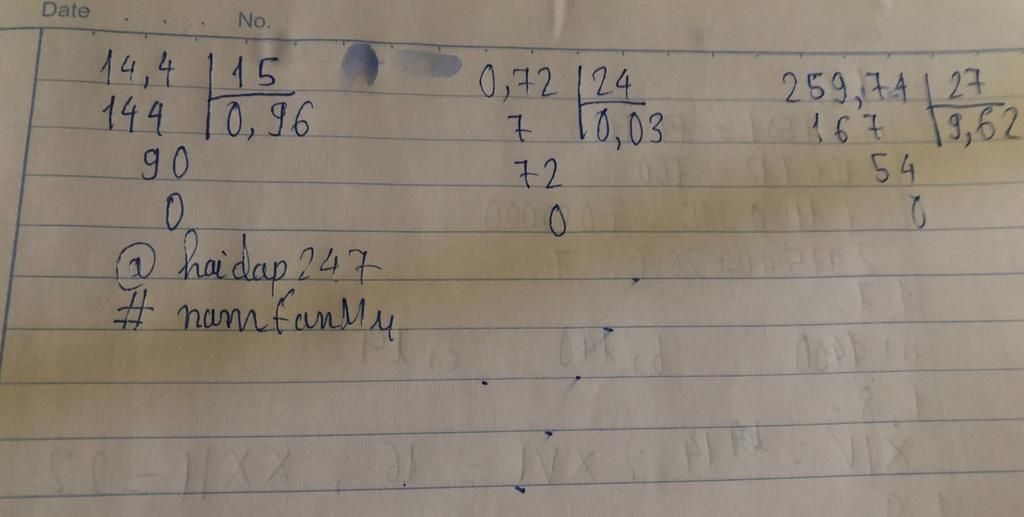 Date . . . . No.
14,4 | 15 0,72 | 24 259,74 | 27
144 | 0,96 7 | 0,03 167 | 9,62
90 72 54
0 0 0
@ haidap247
# namfanMu